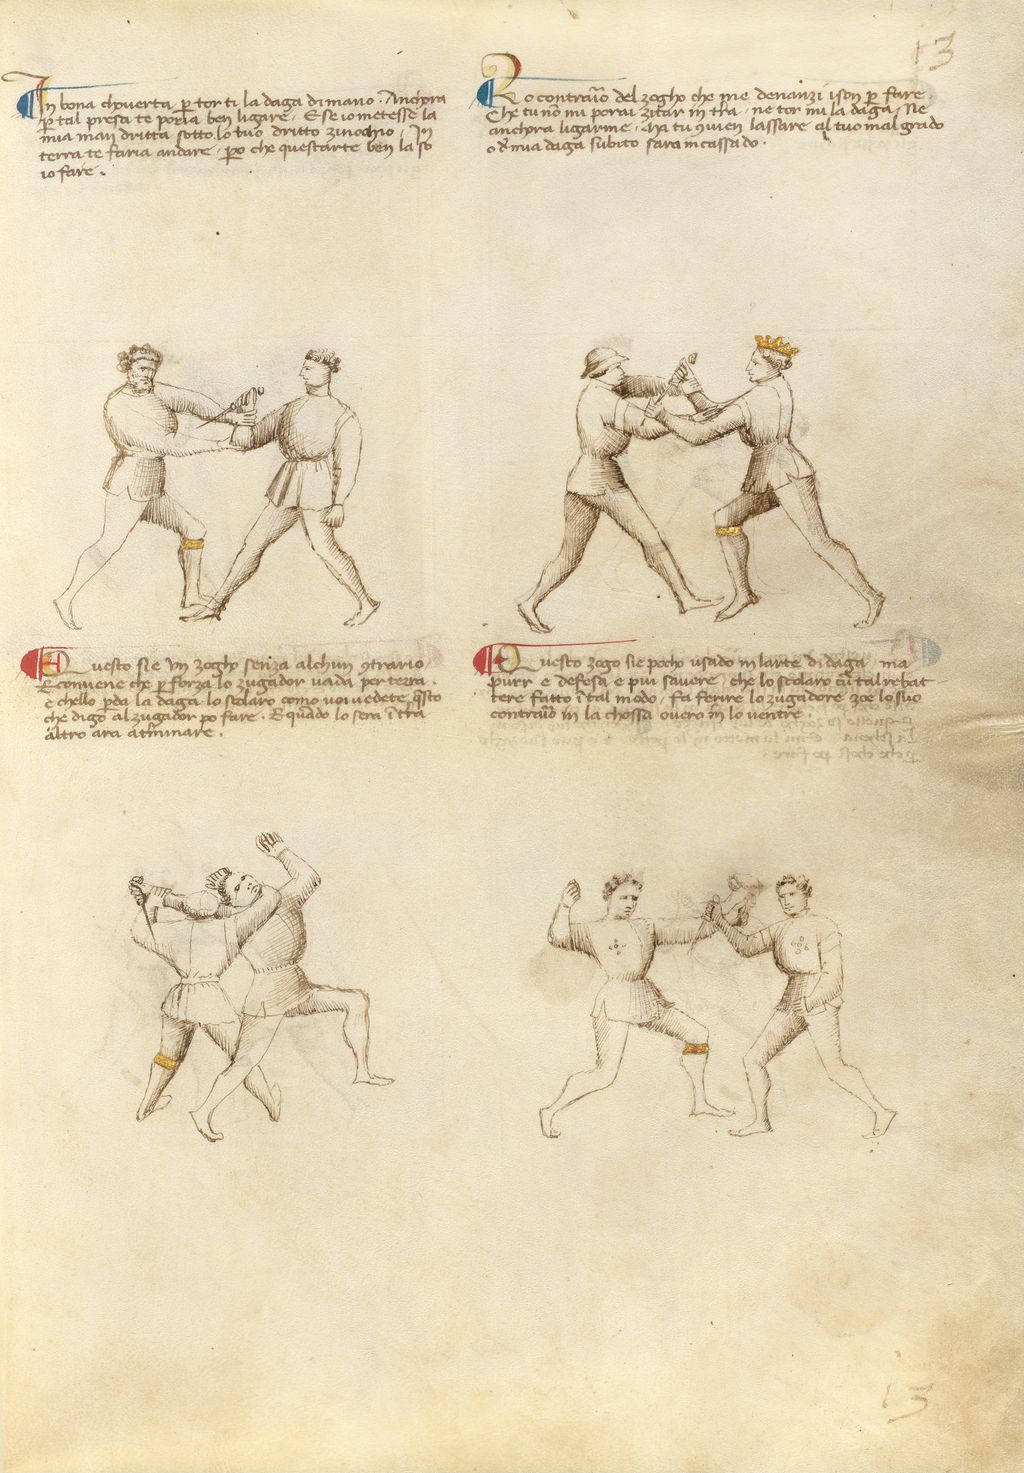 13
In bona choverta p tor ti la daga di mano. Anchora
p tal presa te poria ben ligare. E se io metesse la
mia man dritta sotto lo tuo dritto zinochio. In
terra te faria andare. po che quest arte ben la so
io fare.
Lo contrario del zogho che me denanzi i son p fare.
Che tu no mi porai zitar in tra. ne tor mi la daga. Ne
anchora ligarme. Ma tu convien lassare al tuo mal grado
o d mia daga subito sara incassado.
Questo si e un zogho senza alchun contrario
E convene che p forza lo zugador vada per terra.
e chello pda la daga lo scolaro como voi vedete questo
che digo al zugador po fare. E quando lo sera in tra
altro ara a tminare.
Questo zogo si e pocho usado in larte di daga. ma
purr e defesa e piui savere. che lo scolaro cum tal rebat
tere fatto in tal modo. fa ferire lo zugadore zoe lo suo
contrario in la chossa overo in lo ventre.
13